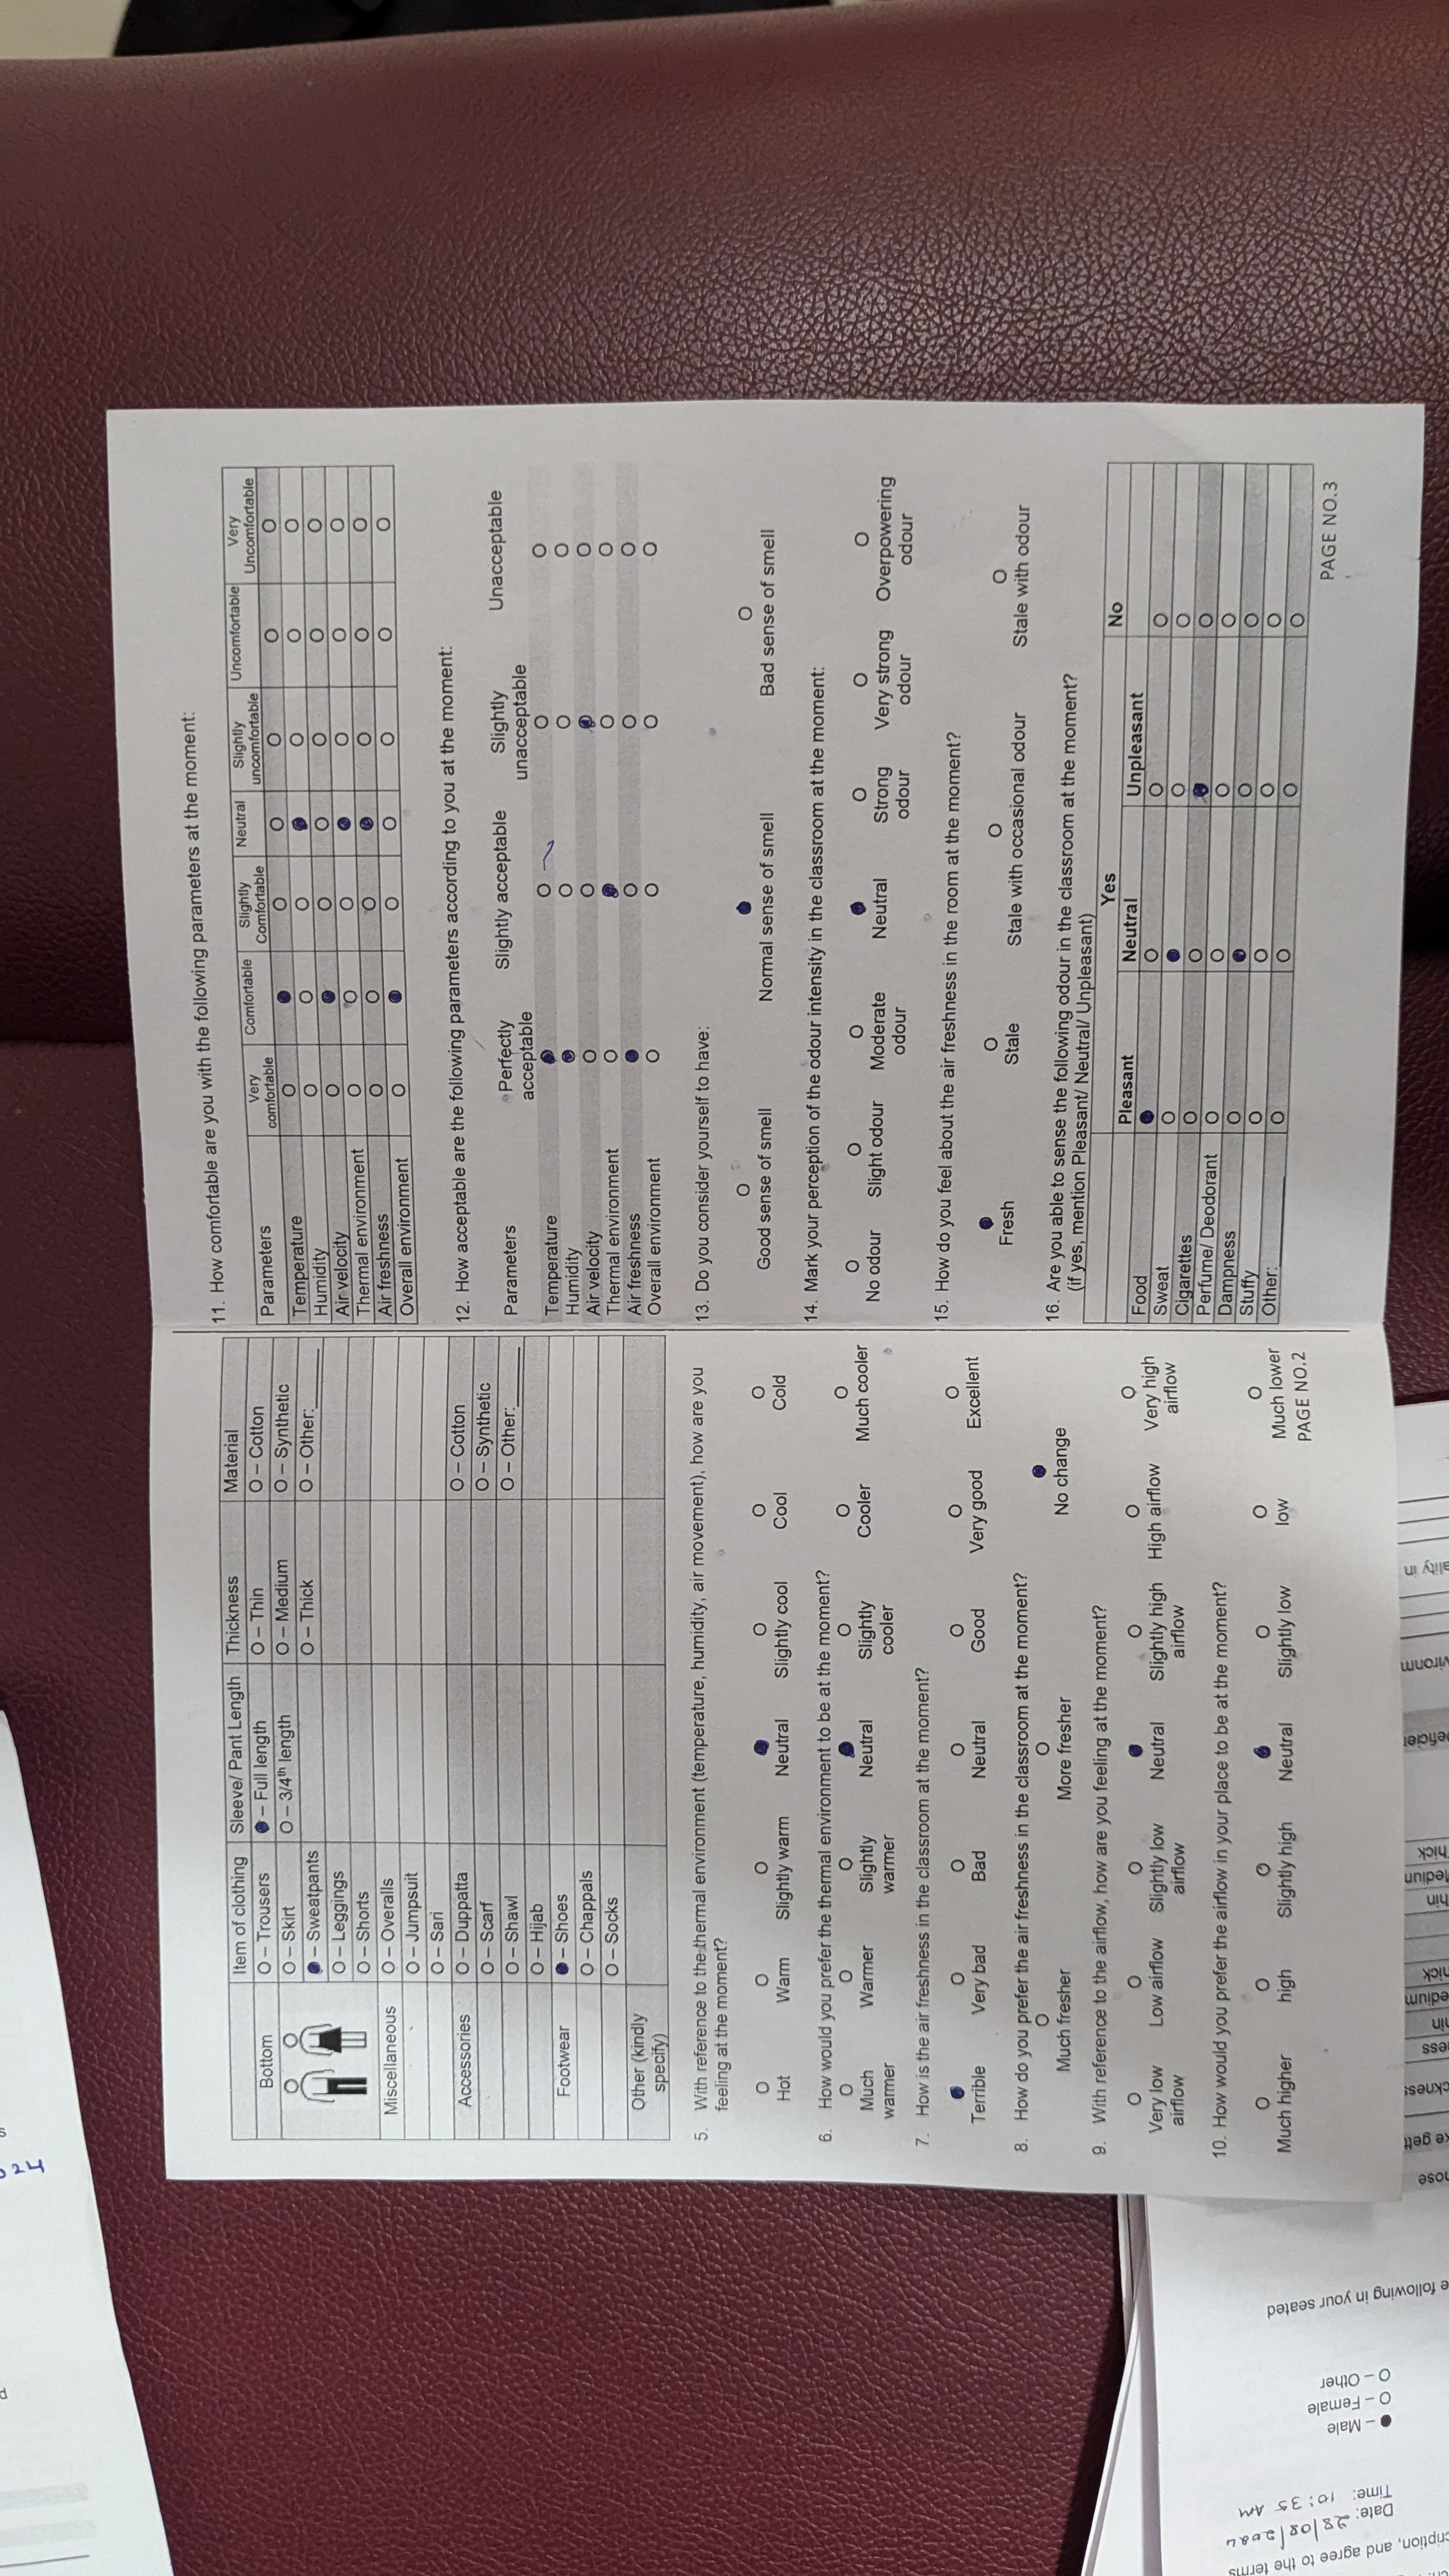 Item of clothing Sleeve/ Pant Length Thickness Material
Bottom O – Trousers ● – Full length O – Thin O – Cotton
O – Skirt O – 3/4th length O – Medium O – Synthetic
● – Sweatpants O – Thick O – Other:______
O – Leggings
O – Shorts
Miscellaneous O – Overalls
O – Jumpsuit
O – Sari
Accessories O – Duppatta O – Cotton
O – Scarf O – Synthetic
O – Shawl O – Other:______
O – Hijab
Footwear ● – Shoes
O – Chappals
O – Socks
Other (kindly
specify)
5. With reference to the thermal environment (temperature, humidity, air movement), how are you
feeling at the moment?
O O O ● O O O
Hot Warm Slightly warm Neutral Slightly cool Cool Cold
6. How would you prefer the thermal environment to be at the moment?
O O O ● O O O
Much Warmer Slightly Neutral Slightly Cooler Much cooler
warmer warmer cooler
7. How is the air freshness in the classroom at the moment?
● O O O O O O
Terrible Very bad Bad Neutral Good Very good Excellent
8. How do you prefer the air freshness in the classroom at the moment?
O O ●
Much fresher More fresher No change
9. With reference to the airflow, how are you feeling at the moment?
O O O ● O O O
Very low Low airflow Slightly low Neutral Slightly high High airflow Very high
airflow airflow airflow airflow
10. How would you prefer the airflow in your place to be at the moment?
O O O ● O O O
Much higher high Slightly high Neutral Slightly low low Much lower
PAGE NO.2
11. How comfortable are you with the following parameters at the moment:
Parameters Very Comfortable Slightly Neutral Slightly Uncomfortable Very
comfortable Comfortable uncomfortable Uncomfortable
Temperature O ● O O O O O
Humidity O O O ● O O O
Air velocity O ● O O O O O
Thermal environment O O O ● O O O
Air freshness O O O ● O O O
Overall environment O ● O O O O O
12. How acceptable are the following parameters according to you at the moment:
Parameters Perfectly Slightly acceptable Slightly Unacceptable
acceptable unacceptable
Temperature ● O O O
Humidity ● O O O
Air velocity O O ● O
Thermal environment O ● O O
Air freshness ● O O O
Overall environment O O O O
13. Do you consider yourself to have:
O ● O
Good sense of smell Normal sense of smell Bad sense of smell
14. Mark your perception of the odour intensity in the classroom at the moment:
O O O ● O O O
No odour Slight odour Moderate Neutral Strong Very strong Overpowering
odour odour odour odour
15. How do you feel about the air freshness in the room at the moment?
● O O O
Fresh Stale Stale with occasional odour Stale with odour
16. Are you able to sense the following odour in the classroom at the moment?
(if yes, mention Pleasant/ Neutral/ Unpleasant)
Yes No
Pleasant Neutral Unpleasant
Food ● O O O
Sweat O ● O O
Cigarettes O O ● O
Perfume/ Deodorant O O O O
Dampness O ● O O
Stuffy O O O O
Other:__________ O O O O
PAGE NO.3
ription, and agree to the terms
Date: 28/08/2024
Time: 10:35 AM
● – Male
O – Female
O – Other
e following in your seated